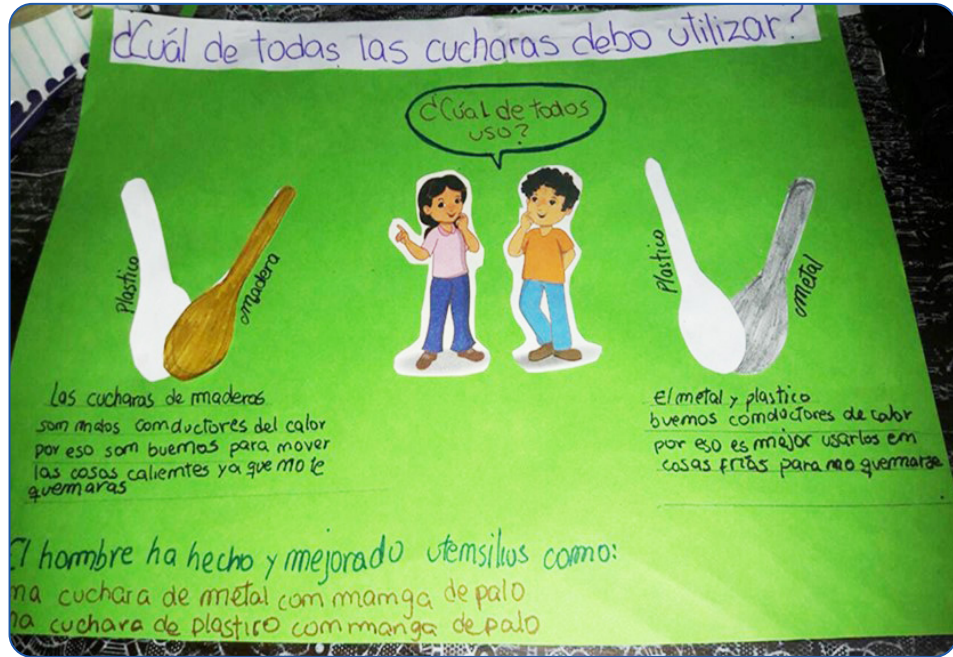 ¿Cuál de todas las cucharas debo utilizar?
¿Cúal de todos
uso?
Plastico
madera
Plastico
metal
Las cucharas de maderas
som malos comductores del calor
por eso som buemos para mover
las cosas caliemtes ya que mo te
quemaras
El metal y plastico
buemos comductores de calor
por eso es mejor usarlos em
cosas frías para mo quemarse
El hombre ha hecho y mejorado utemsilios como:
na cuchara de metal com mamga de palo
na cuchara de plastico com manga de palo